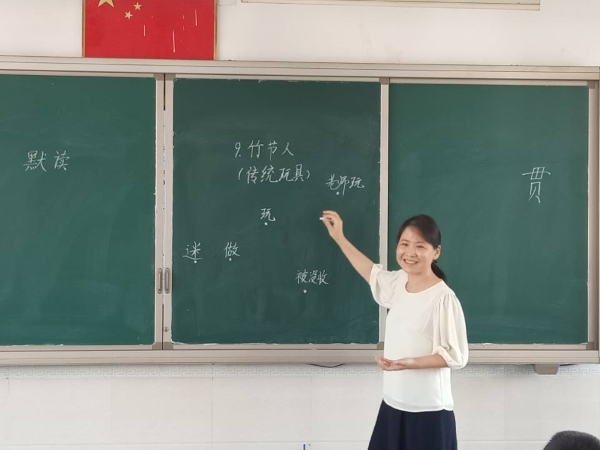 默读
9.竹节人
(传统玩具)
老师玩
玩
迷 做
被没收
贯